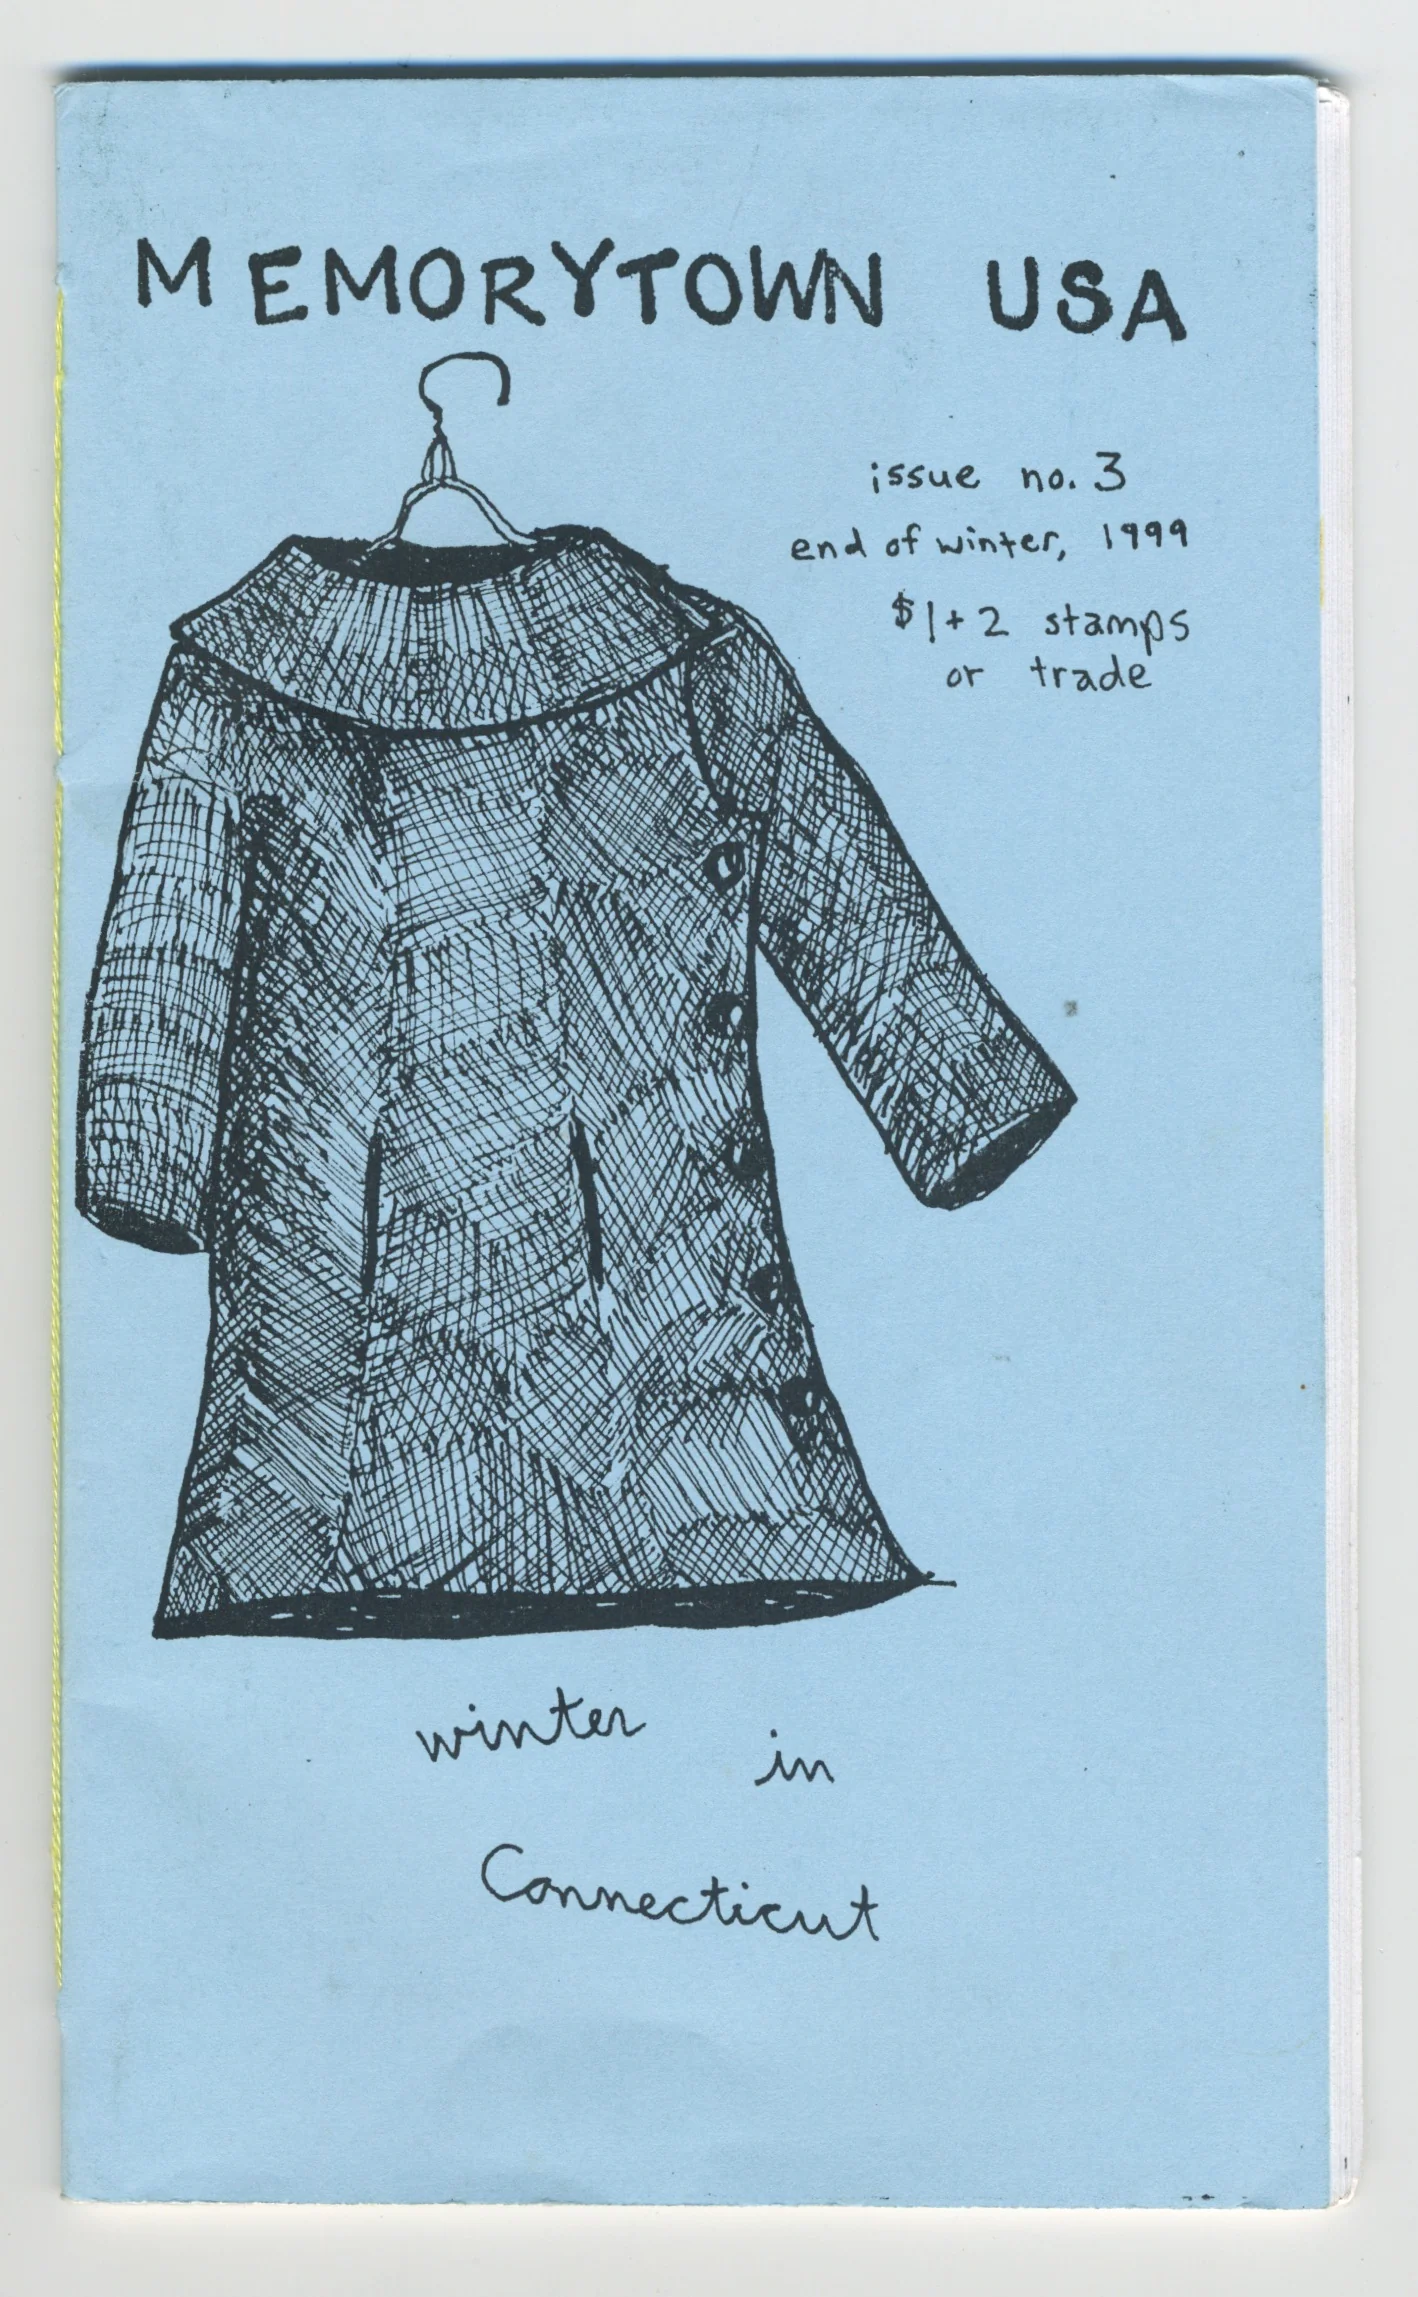 MEMORYTOWN USA
issue no. 3
end of winter, 1999
$1 + 2 stamps
or trade
winter in
Connecticut